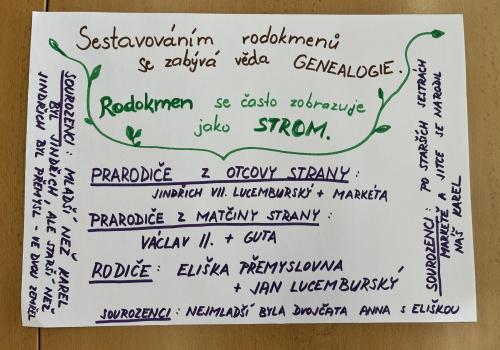 Sestavováním rodokmenů
se zabývá věda GENEALOGIE.
Rodokmen se často zobrazuje
jako STROM.
PRARODIČE Z OTCOVY STRANY:
JINDŘICH VII. LUCEMBURSKÝ + MARKÉTA
PRARODIČE Z MATČINY STRANY:
VÁCLAV II. + GUTA
RODIČE: ELIŠKA PŘEMYSLOVNA
+ JAN LUCEMBURSKÝ
SOUROZENCI: NEJMLADŠÍ BYLA DVOJČATA ANNA S ELIŠKOU
SOUROZENCI: MLADŠÍ NEŽ KAREL
BYL JINDŘICH, ALE STARŠÍ NEŽ
JINDŘICH BYL PŘEMYSL - TEN
SOUROZENCI: PO STARŠÍCH SESTRÁCH
MARKÉTĚ A JITCE SE NARODIL
NÁŠ KAREL